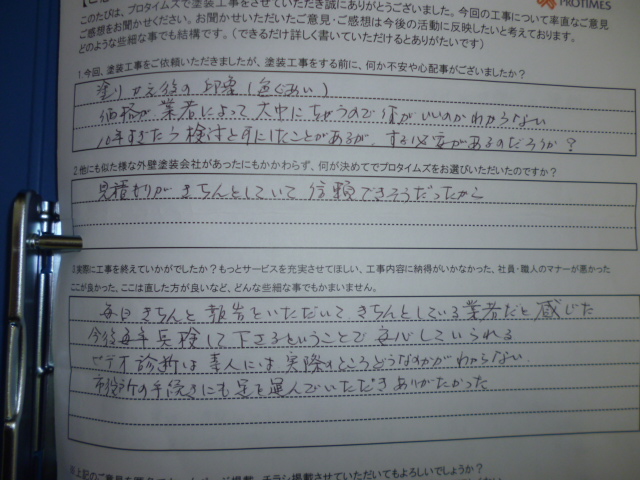 PROTIMES
このたびは、プロタイムズで塗装工事をさせていただき誠にありがとうございました。今回の工事について率直なご意見
ご感想をお聞かせください。お聞かせいただいたご意見・ご感想は今後の活動に反映したいと考えております。
どのような些細な事でも結構です。(できるだけ詳しく書いていただけるとありがたいです)
1.今回、塗装工事をご依頼いただきましたが、塗装工事をする前に、何か不安や心配事がございましたか?
塗りかえ後の印象(色ぐあい)
価格が業者によって大巾にちがうので何がいいのかわからない
10年すぎたら検討と耳にしたことがあるが、する必要があるのだろうか?
2.他にも似た様な外壁塗装会社があったにもかかわらず、何が決めてでプロタイムズをお選びいただいたのですか?
見積りがきちんとしていて信頼できそうだったから
3.実際に工事を終えていかがでしたか?もっとサービスを充実させてほしい、工事内容に納得がいかなかった、社員・職人のマナーが悪かった
ここが良かった、ここは直した方が良いなど、どんな些細な事でもかまいません。
毎日きちんと報告をいただいてきちんとしている業者だと感じた
今後毎年点検して下さるということで安心していられる
ビデオ診断は素人には実際のところどうなのかがわからない
市役所の手続きにも足を運んでいただきありがたかった
※上記のご意見を
掲載、チラシ掲載させていただいてもよろしいでしょうか?